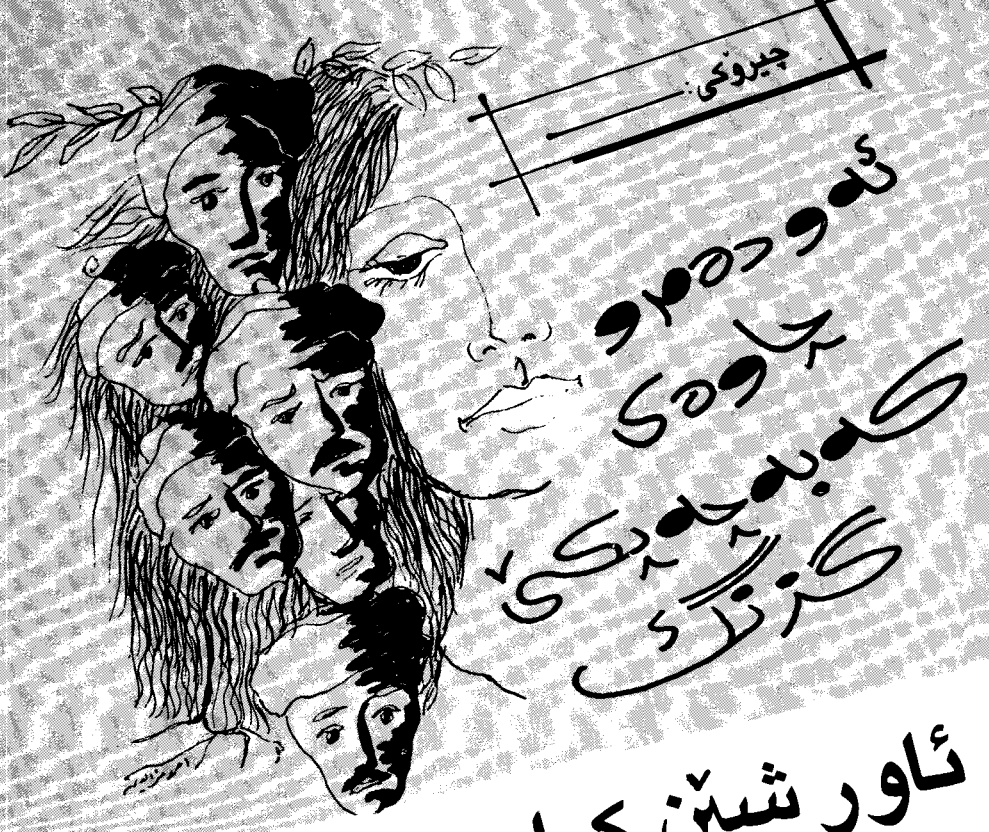 چیرۆکی:
ئەو دەم و
چاوەی
کە بە چەپکێ
گزنگ
ئاور شێن